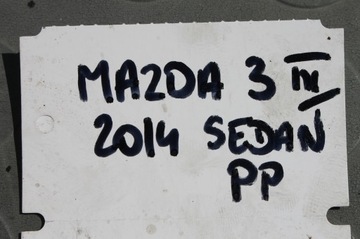 MAZDA 3 III
2014 SEDAN
PP